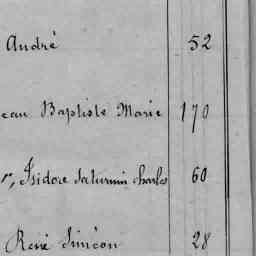 André 52
ean Baptiste Marie 170
r, Isidore Saturnin Charles 60
René Siméon 28